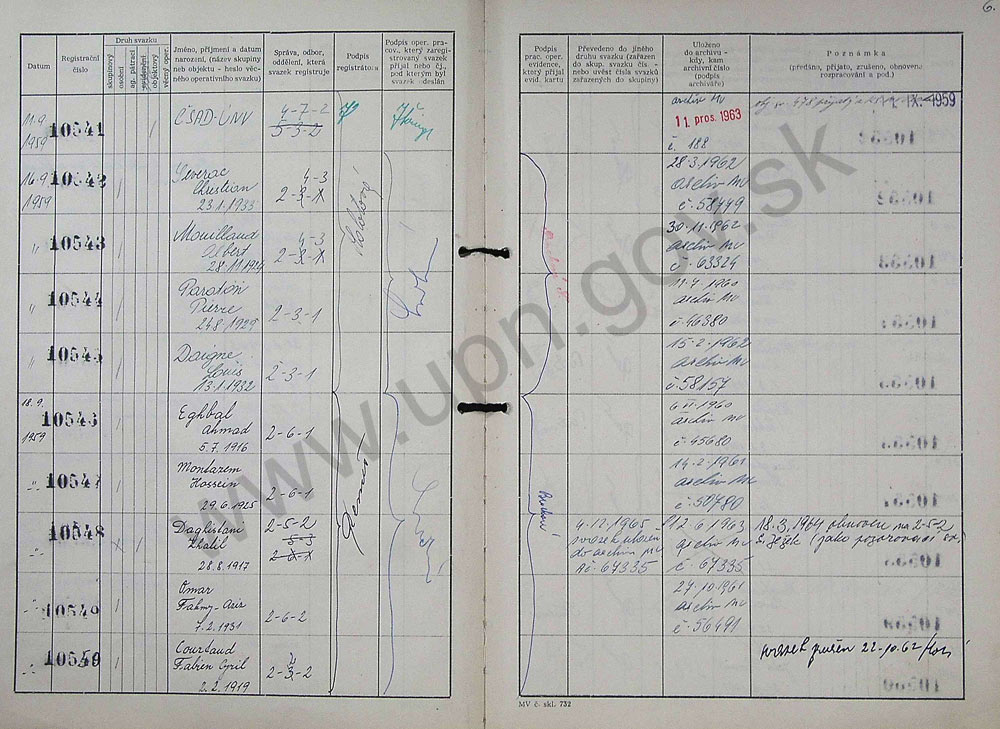 6.
Druh svazku
Datum
Registrační číslo
skupinový
osobní
ag. pátrací
objektový
vězný oper.
Jméno, příjmení a datum narození, (název skupiny neb objektu - heslo věcného operativního svazku)
Správa, odbor, oddělení, která svazek registruje
Podpis registrátora
Podpis oper. pracov., který zaregistrovaný svazek přijal nebo čj., pod kterým byl svazek deslán
Podpis prac. oper. evidence, který přijal evid. kartu
Převedeno do jiného druhu svazku (zařazen do skup. svazku čís - nebo uvést čísla svazků zařazených do skupiny)
Uloženo do archivu - kdy, kam archivní číslo (podpis archiváře)
Poznámka
(předáno, přijato, zrušeno, obnoveno rozpracování a pod.)
11.9. 1959
10541
ČSAD-ÚNV
4-7-2
5-5-2
archiv MV
11 pros. 1963
č. 188
IX. 1959
16.9. 1959
10542
Severac
Christian
23.1.1933
4-3
2-3-1
28.3.1962
archiv MV
č. 58449
10543
Mouillaud
Albert
28.11.1924
4-3
2-3-1
30.11.1962
archiv MV
č. 63324
10544
Pierre
24.8.1929
2-3-1
11.4.1960
archiv MV
č. 46380
10545
Daigne
Louis
13.1.1932
2-3-1
15.2.1962
archiv MV
č. 58157
18.9. 1959
10546
Eghbal
Ahmad
5.7.1916
2-6-1
1960
archiv MV
č. 45680
10547
Montazem
Hossein
29.6.1925
2-6-1
14.2.1961
archiv MV
č. 50780
10548
Daglistani
Khalil
28.8.1917
2-5-2
5-3
4.12.1965
svazek uložen
do archivu MV
Ač. 67335
12.6.1963
archiv MV
č. 67335
18.3.1964 obnoven na 2-5-2
10549
Omar
Fahmy-Aziz
7.2.1931
2-6-2
27.10.1961
archiv MV
č. 56491
10550
Courtaud
Fabien Cyril
2.2.1919
2-3-2
svazek zrušen 22.10.62
MV č. skl. 732
www.upn.gov.sk